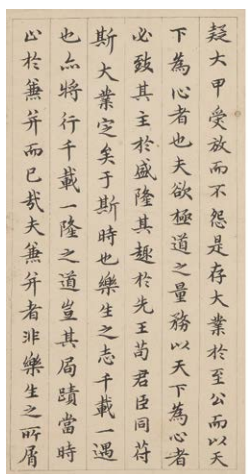 疑大甲受放而不怨是存大業於至公而以天
下為心者也夫欲極道之量務以天下為心者
必致其主於盛隆其趣於先王苟君臣同苻
斯大業定矣于斯時也樂生之志千載一遇
也亦將行千載一隆之道豈其局蹟當時
止於兼并而已哉夫兼并者非樂生之所屑